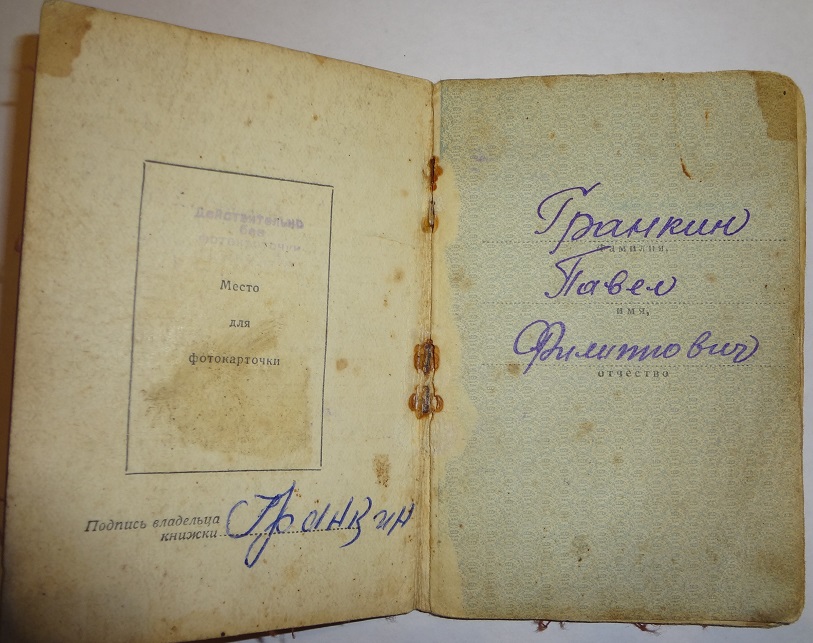 Действительно
без
фотокарточки
Место
для
фотокарточки
Подпись владельца
книжки Гранкин
Гранкин
фамилия,
Павел
имя,
Филиппович
отчество